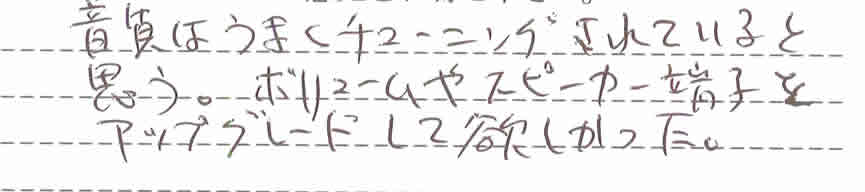 音質はうまくチューニングされていると
思う。ボリュームやスピーカー端子を
アップグレードして欲しかった。